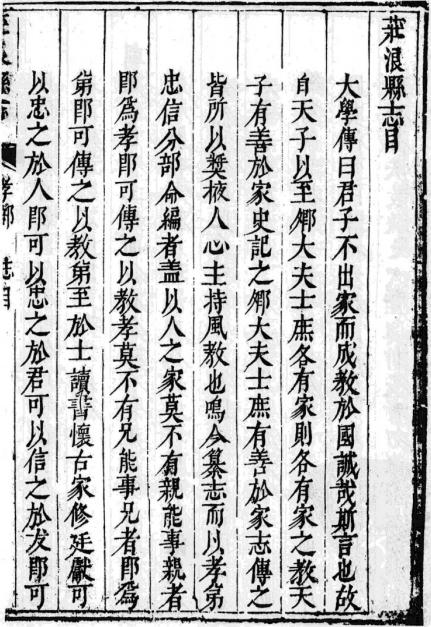 莊浪縣志目
大學傳曰君子不出家而成教於國誠哉斯言也故
自天子以至卿大夫士庶各有家則各有家之教天
子有善於家史記之卿大夫士庶有善於家志傳之
皆所以奬掖人心主持風教也嗚今纂志而以孝弟
忠信分部命編者盖以人之家莫不有親能事親者
即爲孝即可傳之以教孝莫不有兄能事兄者即爲
弟即可傳之以教弟至於士讀書懷古家修廷獻可
以忠之於人即可以忠之於君可以信之於友即可
莊浪縣志 孝部 志目